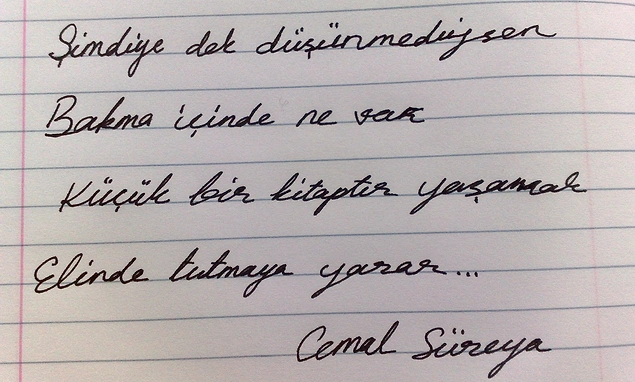 Şimdiye dek düşünmediysen
Bakma içinde ne var
Küçük bir kitaptır yaşamak
Elinde tutmaya yarar...
Cemal Süreya